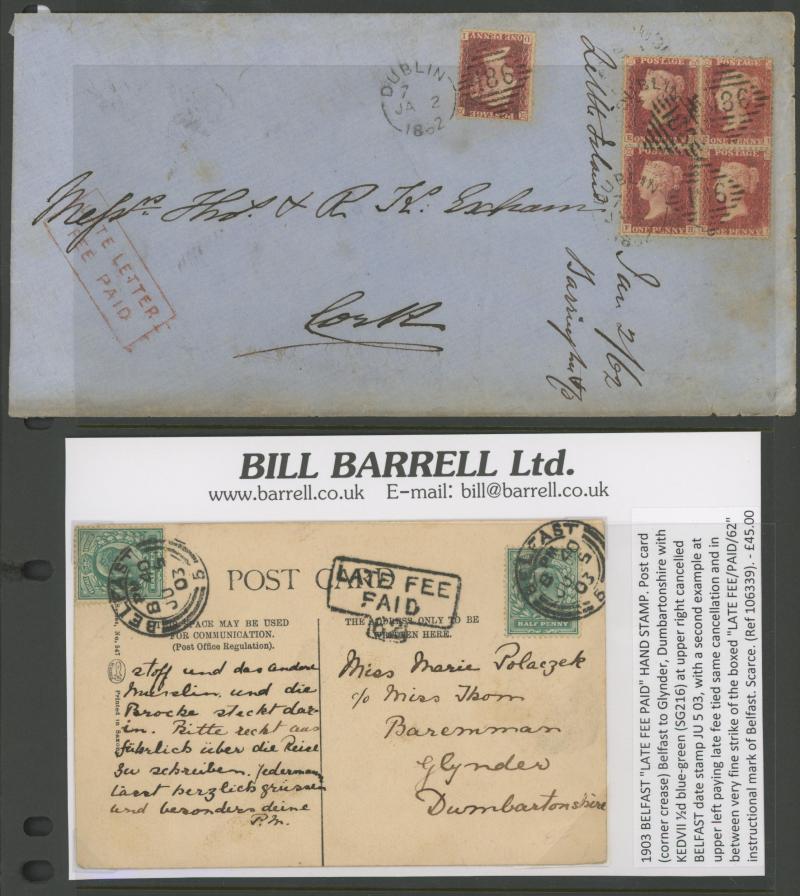 DUBLIN
7
JA 2
1862
186
ONE PENNY
POSTAGE
POSTAGE
POSTAGE
186
POSTAGE
POSTAGE
ONE PENNY
ONE PENNY
Little Island
Jan 2/62
Messrs Thos. & R. K. Exham
Cork
LATE LETTER
RATE PAID
BILL BARRELL Ltd.
www.barrell.co.uk E-mail: bill@barrell.co.uk
BELFAST
8 PM
JU 5
03
5
POST CARD
LATE FEE
PAID
62
BELFAST
8 PM
JU 5
03
HALF PENNY
THIS SPACE MAY BE USED
FOR COMMUNICATION.
(Post Office Regulation).
THE ADDRESS ONLY TO BE
WRITTEN HERE.
No. 547
Printed in Saxony
stoff und das andere
Munslin und die
Brocke steckt dar-
in. Bitte recht aus
führlich über die Reise
zu schreiben. Jedermann
lässt herzlich grüssen
und besonders deine
P.M.
Miss Marie Polaczek
c/o Miss Thom
Baremman
Glynder
Dumbartonshire
1903 BELFAST "LATE FEE PAID" HAND STAMP. Post card
(corner crease) Belfast to Glynder, Dumbartonshire with
KEDVII ½d blue-green (SG216) at upper right cancelled
BELFAST date stamp JU 5 03, with a second example at
upper left paying late fee tied same cancellation and in
between very fine strike of the boxed "LATE FEE/PAID/62"
instructional mark of Belfast. Scarce. (Ref 106339). - £45.00